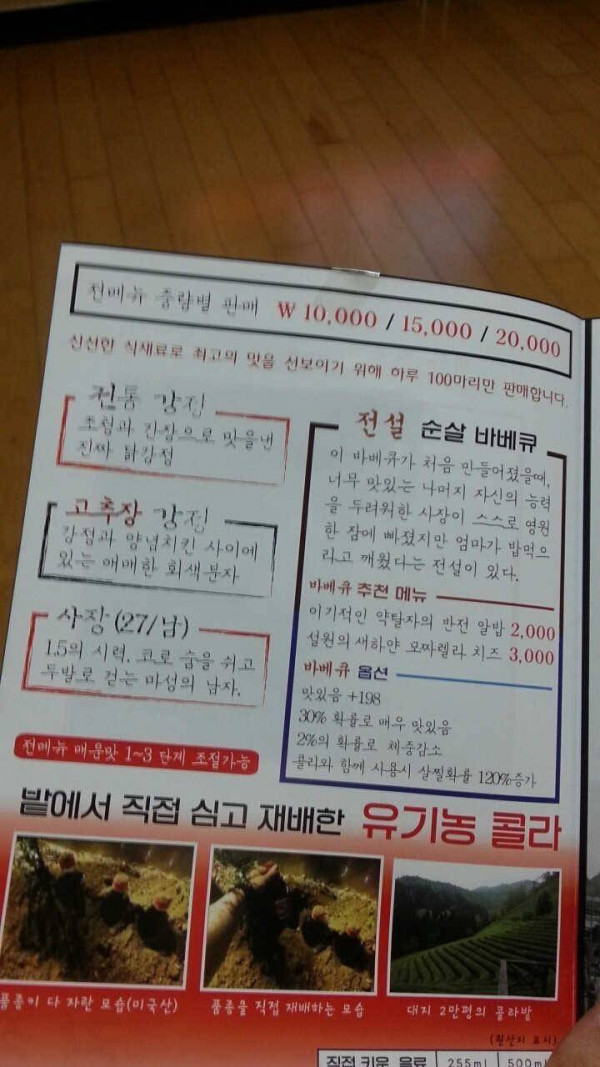 전메뉴 중량별 판매 ₩ 10,000 / 15,000 / 20,000
신선한 식새료로 최고의 맛을 선보이기 위해 하루 100마리만 판매합니다.
전통 강정
조청과 간장으로 맛을낸
진짜 닭강정
고추장 강정
강정과 양념치킨 사이에
있는 애매한 회색분자
사장(27/남)
1.5의 시력. 코로 숨을 쉬고
두발로 걷는 마성의 남자.
전메뉴 매운맛 1~3 단계 조절가능
전설 순살 바베큐
이 바베큐가 처음 만들어졌을때,
너무 맛있는 나머지 자신의 능력
을 두려워한 사장이 스스로 영원
한 잠에 빠졌지만 엄마가 밥먹으
라고 깨웠다는 전설이 있다.
바베큐 추천 메뉴
이기적인 약탈자의 반전 알밥 2,000
설원의 새하얀 모짜렐라 치즈 3,000
바베큐 옵션
맛있음 +198
30% 확률로 매우 맛있음
2%의 확률로 체중감소
콜라와 함께 사용시 살찔확률 120%증가
밭에서 직접 심고 재배한 유기농 콜라
품종이 다 자란 모습(미국산)
품종을 직접 재배하는 모습
대지 2만평의 콜라밭
(원산지 표시)
직접 키운 음료 255ml 500ml